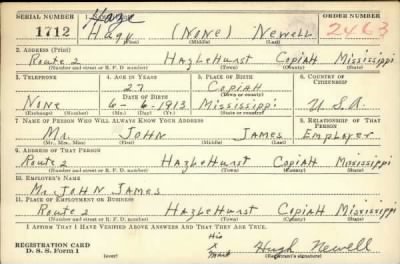 SERIAL NUMBER ORDER NUMBER
1712 Hugh (NONE) Newell 2463
(First) (Middle) (Last)
2. ADDRESS (Print)
Route 2 HazleHurst COPIAH Mississippi
(Number and street or R. F. D. number) (Town) (County) (State)
3. TELEPHONE 4. AGE IN YEARS 5. PLACE OF BIRTH 6. COUNTRY OF CITIZENSHIP
27 COPIAH
DATE OF BIRTH (Town or county)
None 6-6-1913 Mississippi U.S.A.
(Exchange) (Number) (Mo.) (Day) (Yr.) (State or country)
7. NAME OF PERSON WHO WILL ALWAYS KNOW YOUR ADDRESS 8. RELATIONSHIP OF THAT PERSON
Mr. JOHN JAMES Employer
(Mr., Mrs., Miss) (First) (Middle) (Last)
9. ADDRESS OF THAT PERSON
Route 2 HazleHurst COPIAH Mississippi
(Number and street or R. F. D. number) (Town) (County) (State)
10. EMPLOYER'S NAME
Mr. JOHN JAMES
11. PLACE OF EMPLOYMENT OR BUSINESS
Route 2 HazleHurst COPIAH Mississippi
(Number and street or R. F. D. number) (Town) (County) (State)
I AFFIRM THAT I HAVE VERIFIED ABOVE ANSWERS AND THAT THEY ARE TRUE.
His
REGISTRATION CARD x Hugh Newell
D. S. S. Form 1 (over) Mark (Registrant's signature)